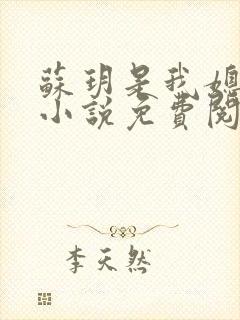 蘇玥是我媳
小說免費閱
李天然